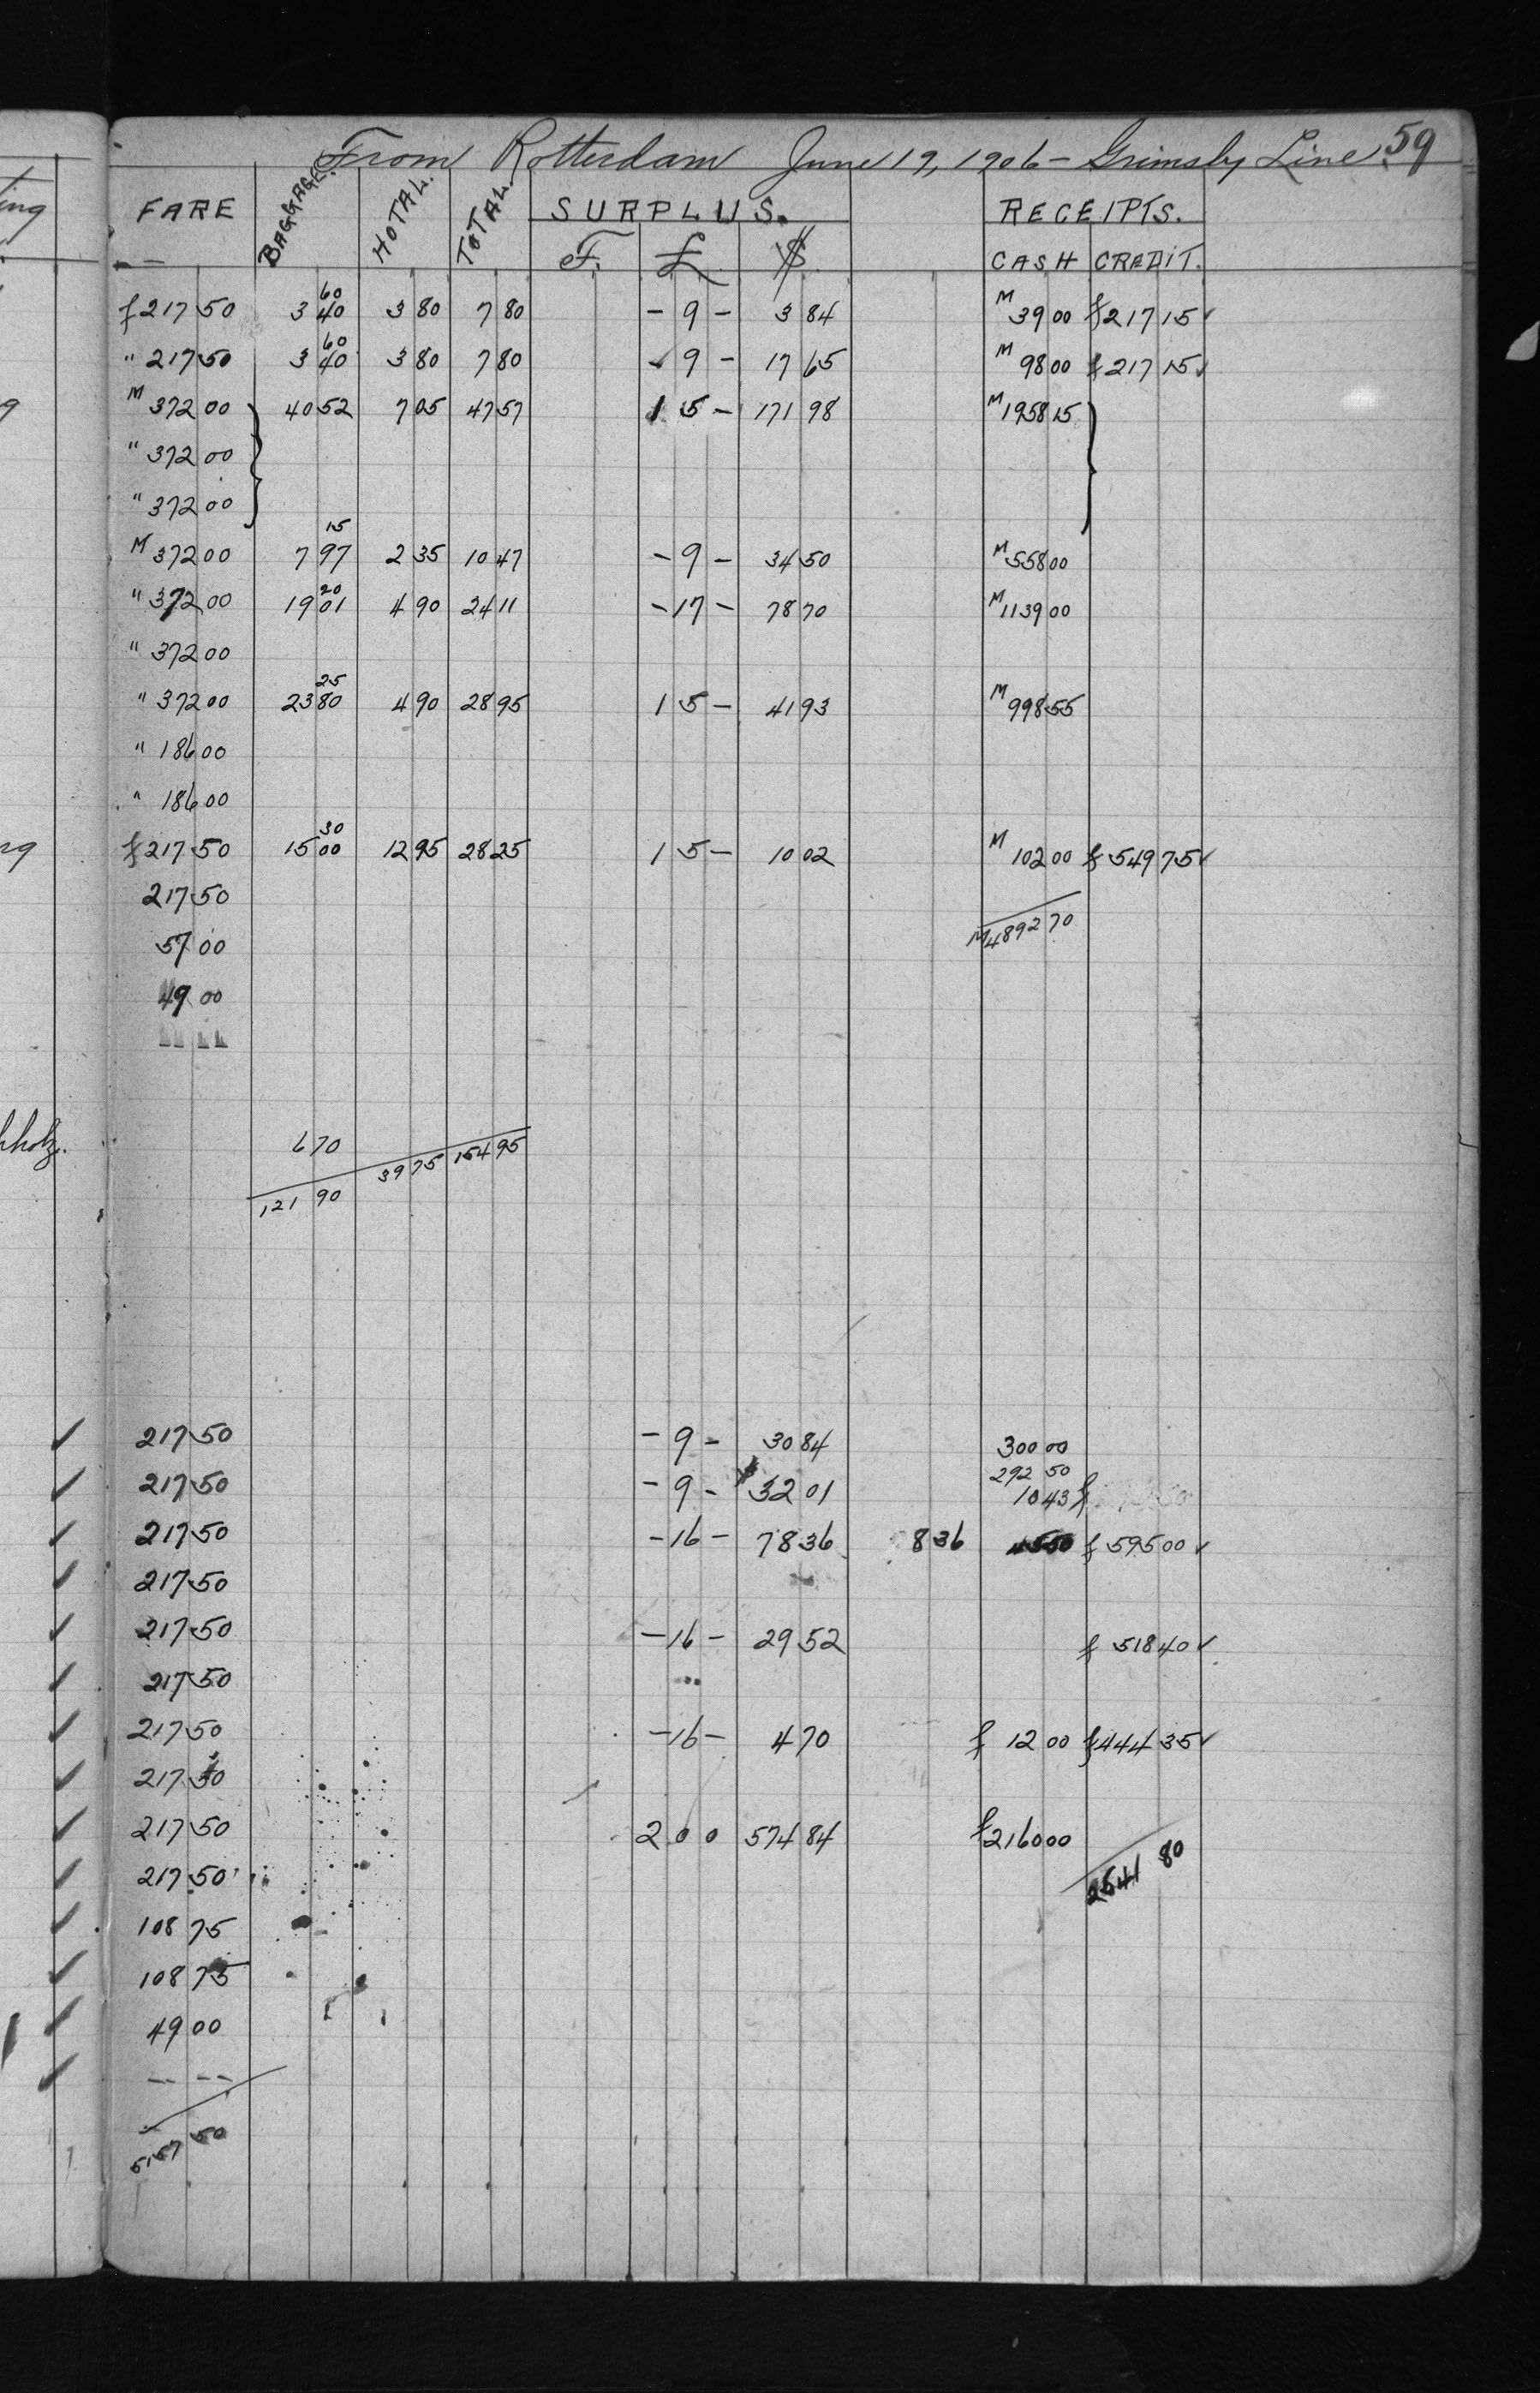 From Rotterdam June 19, 1906 - Grimsby Line 59
FARE BAGGAGE. HOTAL. TOTAL. SURPLUS. RECEIPTS.
F. £ $ CASH CREDIT.
60
f 217 50 3 40 3 80 7 80 - 9 - 3 84 M 39 00 f 217 15 ✓
60
" 217 50 3 40 3 80 7 80 - 9 - 17 65 M 98 00 f 217 15 ✓
M 372 00 40 52 7 05 47 57 1 5 - 171 98 M 1958 15
" 372 00
" 372 00
15
M 372 00 7 97 2 35 10 47 - 9 - 34 50 M 558 00
20
" 372 00 19 01 4 90 24 11 - 17 - 78 70 M 1139 00
" 372 00
25
" 372 00 23 80 4 90 28 95 1 5 - 41 93 M 998 55
" 186 00
" 186 00
30
f 217 50 15 00 12 95 28 25 1 5 - 10 02 M 102 00 f 549 75 ✓
217 50
M 4892 70
57 00
49 00
hholz.
6 70
39 75 154 95
121 90
✓ 217 50 - 9 - 30 84 300 00
292 50
✓ 217 50 - 9 - $ 32 01 10 43 f
✓ 217 50 - 16 - 78 36 8 36 f 595 00 ✓
✓ 217 50
✓ 217 50 - 16 - 29 52 f 518 40 ✓
✓ 217 50
✓ 217 50 - 16 - 4 70 f 12 00 f 444 35 ✓
✓ 217 50
✓ 217 50 2 0 0 574 84 f 2160 00
2541 80
✓ 217 50
✓ 108 75
✓ 108 75
✓ 49 00
✓ - - -
5157 50